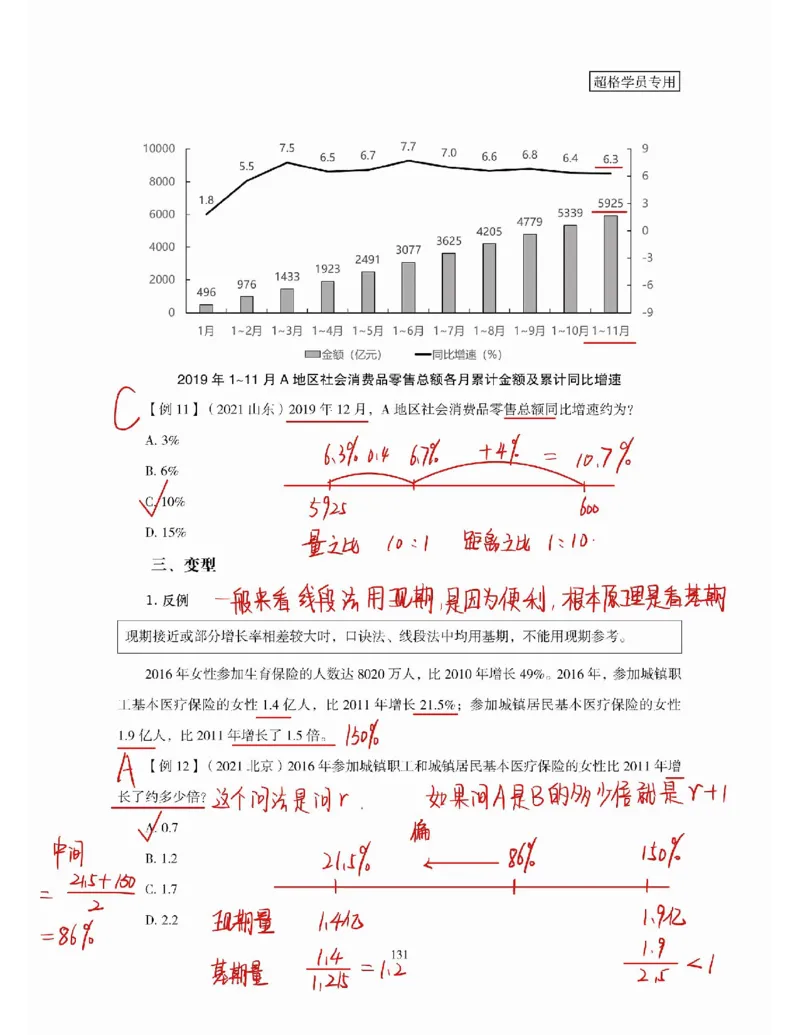 超格学员专用
10000 9
8000 6
6000 3
4000 0
2000 -3
-6
0 -9
1.8 5.5 7.5 6.5 6.7 7.7 7.0 6.6 6.8 6.4 6.3
496 976 1433 1923 2491 3077 3625 4205 4779 5339 5925
1月 1~2月 1~3月 1~4月 1~5月 1~6月 1~7月 1~8月 1~9月 1~10月 1~11月
金额（亿元） 同比增速（%）
2019 年 1~11 月 A 地区社会消费品零售总额各月累计金额及累计同比增速
C
【例 11】（2021 山东）2019 年 12 月，A 地区社会消费品零售总额同比增速约为?
A. 3%
6.3% 0.4 6.7% +4% = 10.7%
B. 6%
C. 10%
5925 600
D. 15%
量之比 10:1 距离之比 1:10.
三、变型
1. 反例
一般来看线段法用现期,是因为便利,根本原理是看基期
现期接近或部分增长率相差较大时，口诀法、线段法中均用基期，不能用现期参考。
2016 年女性参加生育保险的人数达 8020 万人，比 2010 年增长 49%。2016 年，参加城镇职
工基本医疗保险的女性 1.4 亿人，比 2011 年增长 21.5%；参加城镇居民基本医疗保险的女性
1.9 亿人，比 2011 年增长了 1.5 倍。 150%
A
【例 12】（2021 北京）2016 年参加城镇职工和城镇居民基本医疗保险的女性比 2011 年增
长了约多少倍? 这个问法是问r. 如果问A是B的多少倍就是r+1
A. 0.7
偏
B. 1.2
21.5% 86% 150%
中间
= 21.5+150
2
=86%
C. 1.7
D. 2.2
现期量 1.4亿 1.9亿
基期量 1.4
1.215
=1.2
1.9
2.5
<1
131